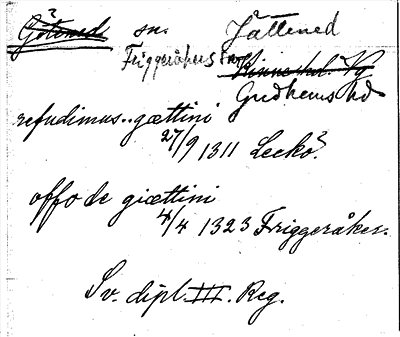 Götened? sn. Jättened
Friggeråkers sn
Kinne hd. Vg
Gudhems hd
refudimus.. gættini
27/9 1311 Leckö?
offo de giættini
4/4 1323 Friggeråker.
Sv. dipl. III. Reg.